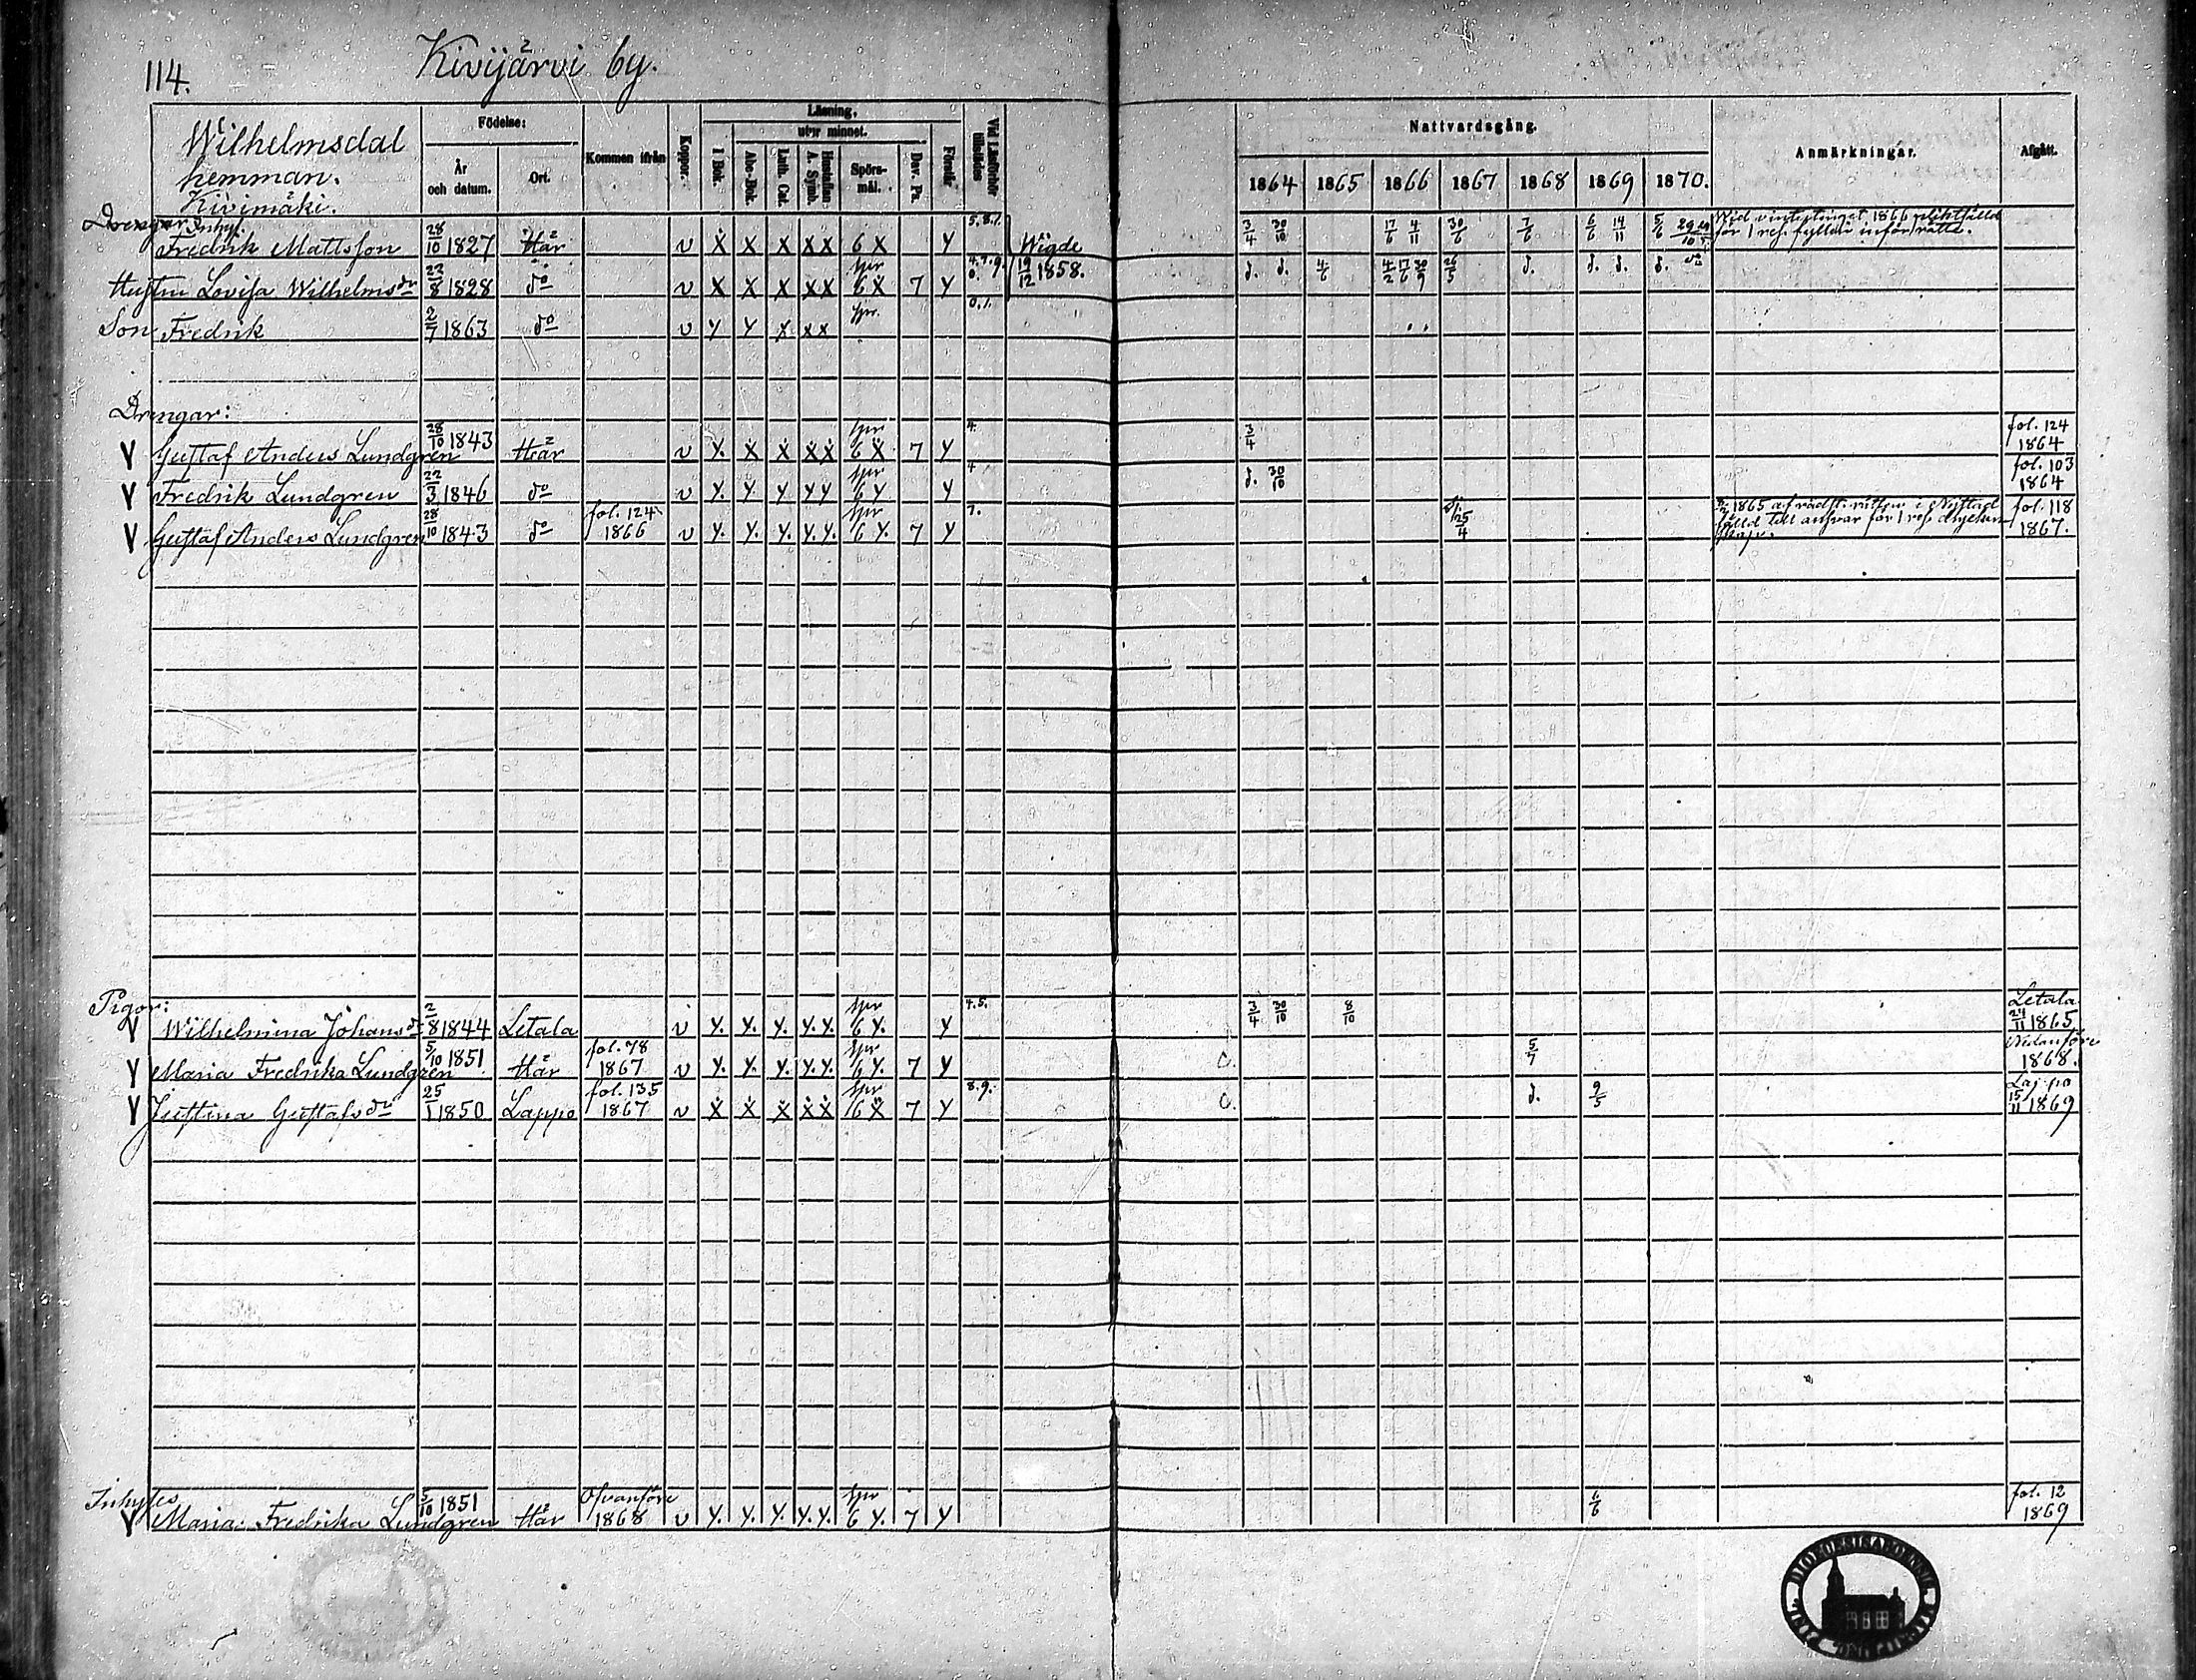 114. Kivijärvi by.
Wilhelmsdal
hemman.
Kivimäki.
Födelse:
År
och datum.
Ort.
Kommen ifrån
Koppor.
Läsning,
utur minnet.
I Bok.
Abc-Bok.
Luth. Cat.
Hustaflan
A. Symb.
Spörs-
mål.
Dav. Ps.
Förstår
Vid Läseförhör
tillstädes
Nattvardsgång.
1864 1865 1866 1867 1868 1869 1870.
Anmärkningar.
Afgått.
Inhy.
Fredrik Mattsson 28/10 1827 Här v X X X X X 6 X Y 5.8.1. Wigde 3/4 30/10 17/6 4/11 30/6 7/6 6/6 14/11 5/6 Wid vintertinget 1866
för 1 res. fylleri inför rätta.
Hustru Lovisa Wilhelmsdr 22/8 1828 do v X X X X X spr 6 X 7 Y 4.7.9. 0. 19/12 1858. d. d. 4/6 4/2 17/6 30/9 26/5 d. d. d. d.
Son Fredrik 2/7 1863 do v Y Y X X X spr. 0.1.
Drengar:
V Gustaf Anders Lundgren 28/10 1843 Här v Y. X X X X spr 6 X 7 Y 4. 3/4 fol. 124 1864
V Fredrik Lundgren 22/3 1846 do v Y. Y Y Y Y spr 6 Y Y 4 d. 30/10 fol. 103 1864
V Gustaf Anders Lundgren 28/10 1843 do fol. 124 1866 v Y. Y. Y. Y. Y. spr 6 Y. 7 Y 7. 25/4 1865 af rådst. rätten i Nystad fol. 118
fälld till ansvar för 1 res. 1867.
Pigor:
V Wilhelmina Johansdr 2/8 1844 Letala v Y. Y. Y. Y. Y. spr 6 Y. Y 4.5. 3/4 30/10 8/10 Letala 24/11 1865
V Maria Fredrika Lundgren 5/10 1851 Här fol. 78 1867 v Y. Y. Y. Y. Y. spr 6 Y. 7 Y C. 5/7 Nedanföre 1868.
V Justina Gustafsdr 25/1 1850 Lappo fol. 135 1867 v X X X X X spr 6 X 7 Y 8.9. C. d. 9/5 15/11 1869
Inhyses
V Maria Fredrika Lundgren 5/10 1851 Här Ofvanföre 1868 v Y. Y. Y. Y. Y. spr 6 Y. 7 Y 6/6 fol. 12 1869